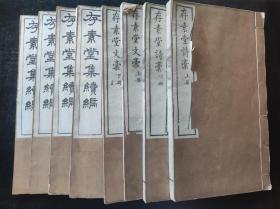 存素堂詩稾
上冊
存素堂詩稾
存素堂文稾
上冊
存素堂文稾
下冊
存素堂集續編
存素堂集續編
存素堂集續編
存素堂集續編